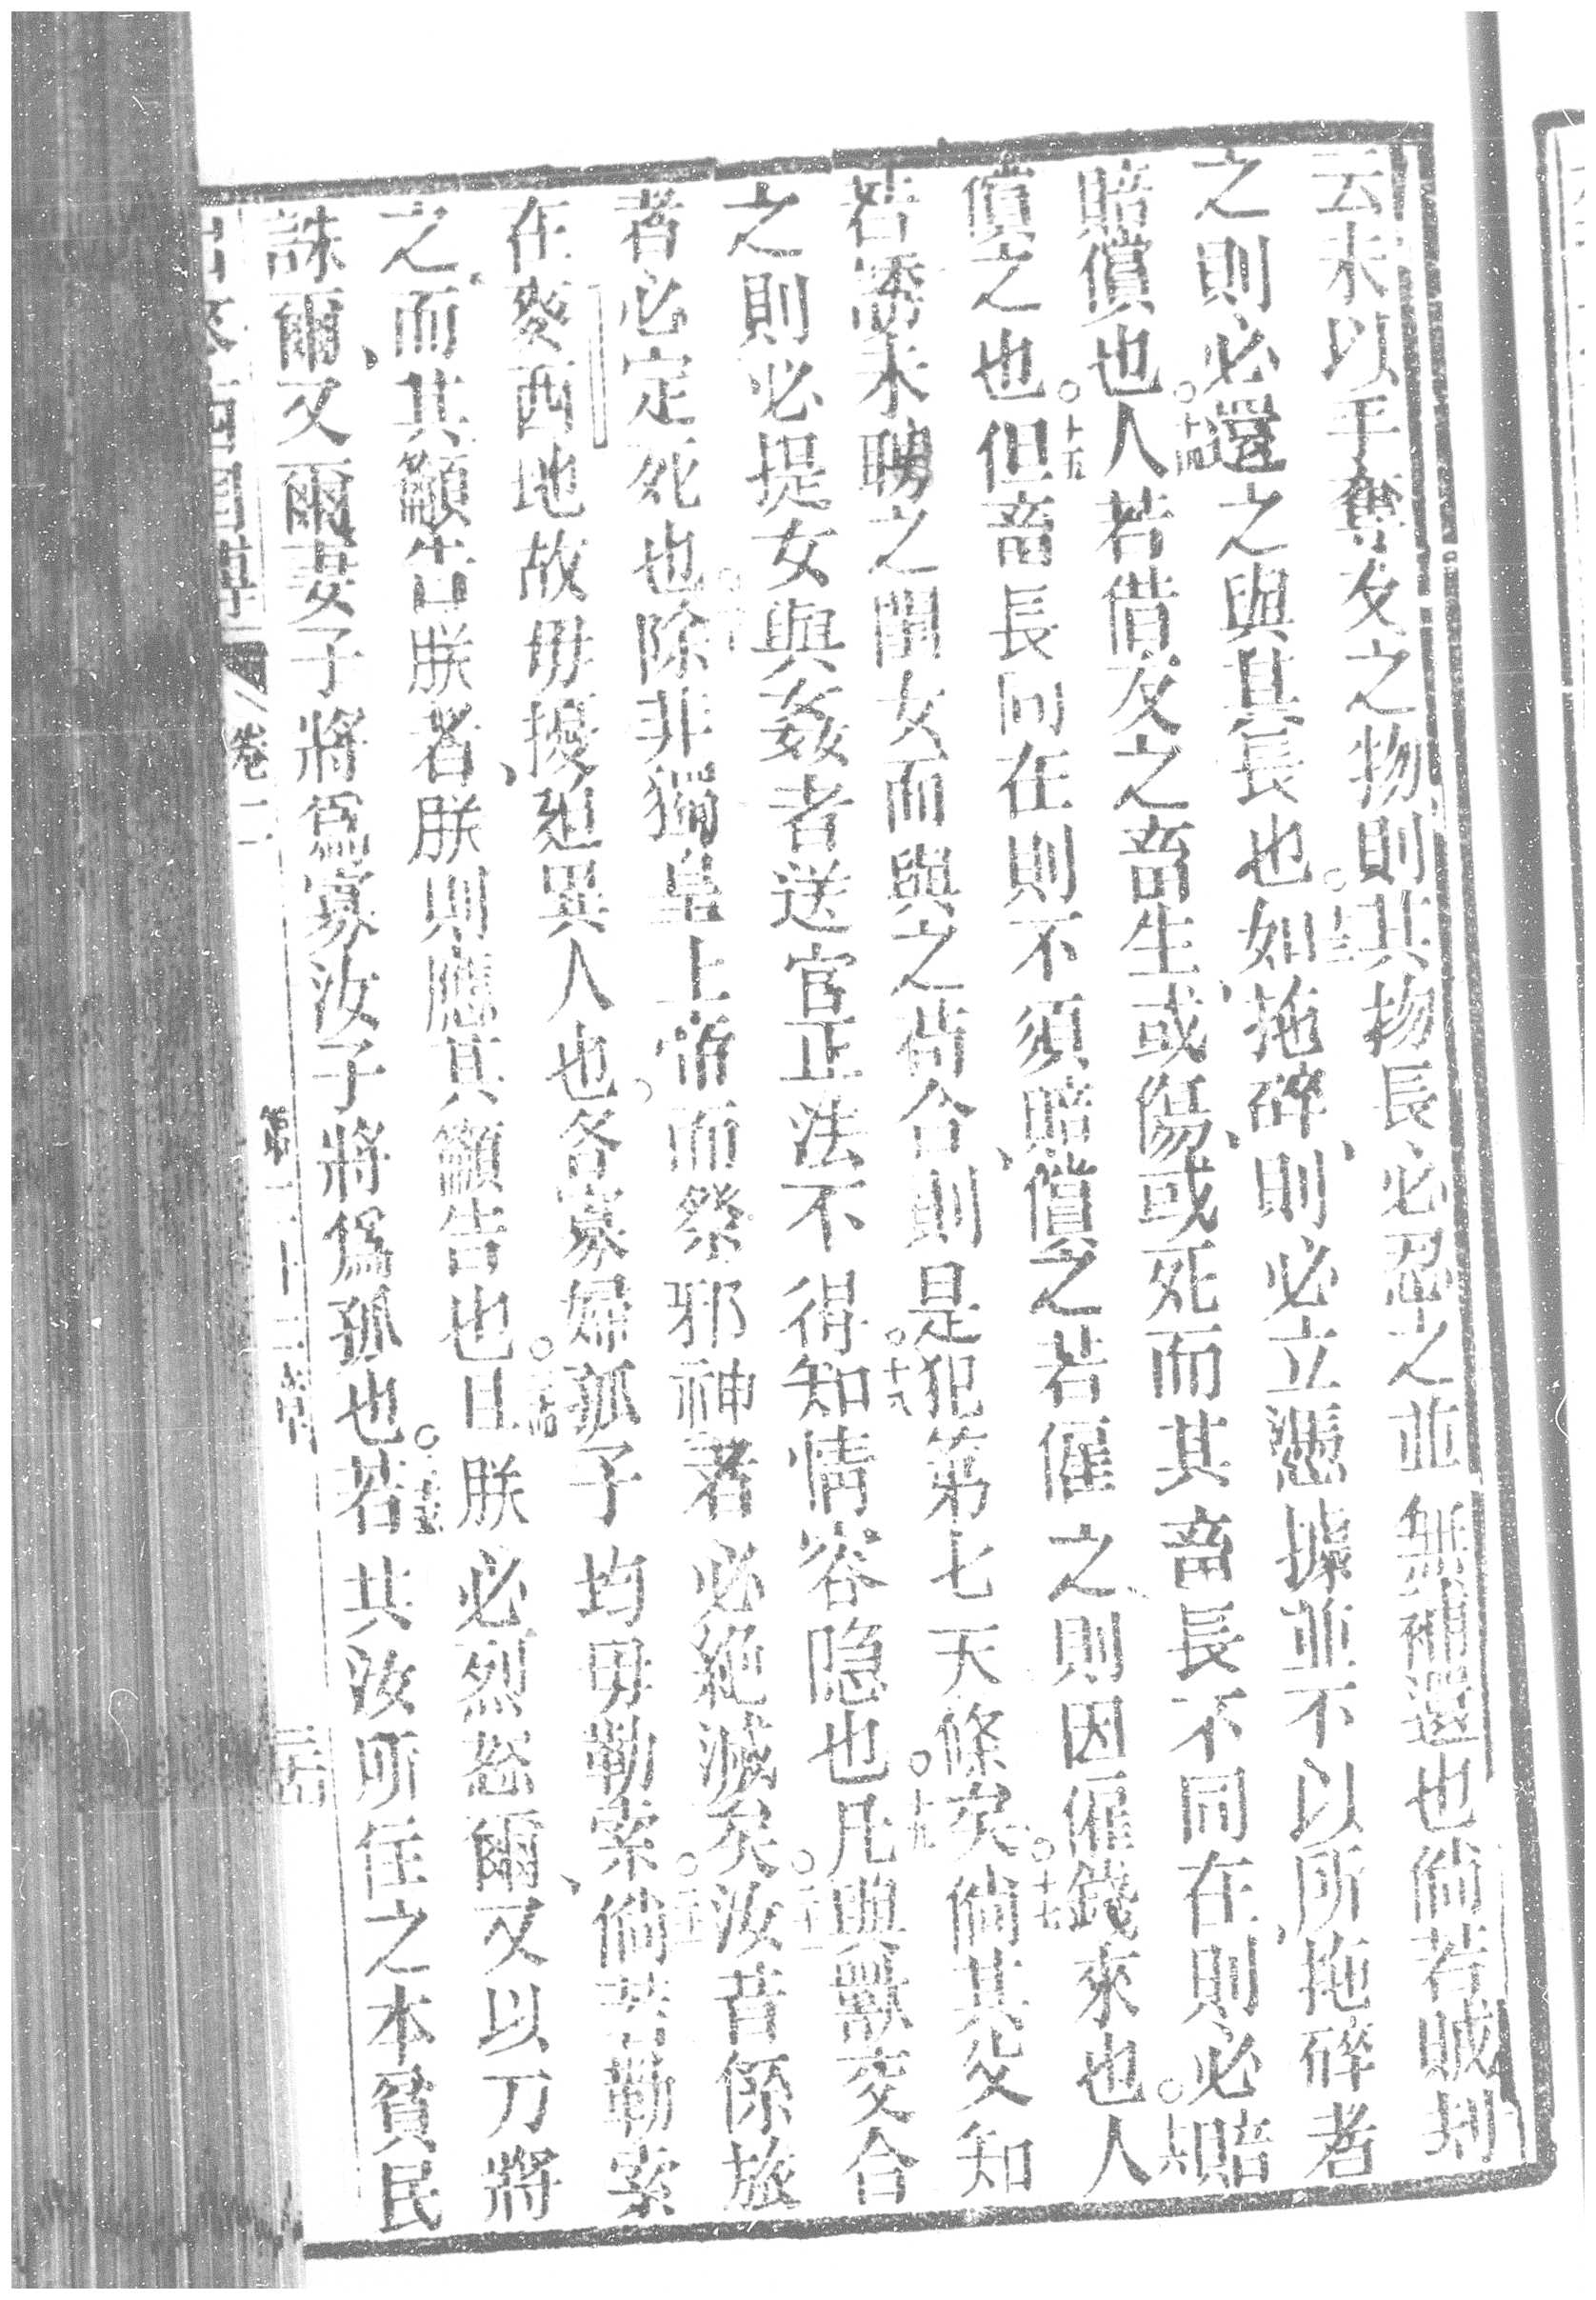 云未以手奪友之物則其物長必忍之並無補還也倘若賊刦
之則必還之與其長也。十三如拖碎、則必立憑據並不以所拖碎者
賠償也。十四人若借友之畜生、或傷、或死而其畜長不同在、則必賠
償之也。十五但畜長同在則不須賠償之若僱之、則因僱錢來也。十六人
若誘未聘之閨女而與之苟合、則是犯第七天條矣。十七倘其父知
之則必捉女與姦者送官正法不得知情容隐也。十九凡與獸交合
者必定死也。二十除非獨皇上帝而祭邪神者必絕滅矣。二十一汝昔係旅
在麥西地故毋擾廹異人也。各寡婦孤子均毋勒索。二十三倘若勒索
之、而其籲告朕者、朕則應其籲告也。二十四且朕必烈怒爾、又以刀將
誅爾、又爾妻子將爲寡汝子將爲孤也。二十五若共汝所住之本貧民
出麥西國傳 卷二 第二十二章